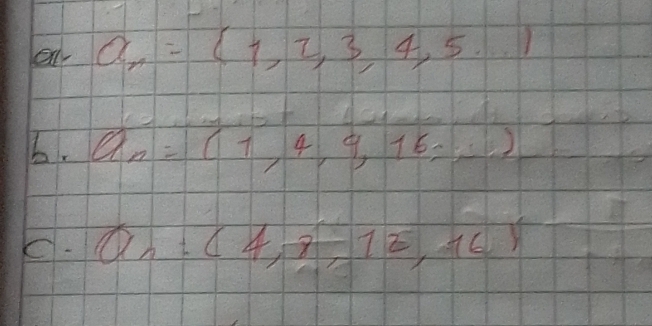 a. an = (1, 2, 3, 4, 5...)
b. an = (1, 4, 9, 16...)
c. an = (4, 8, 12, 16)